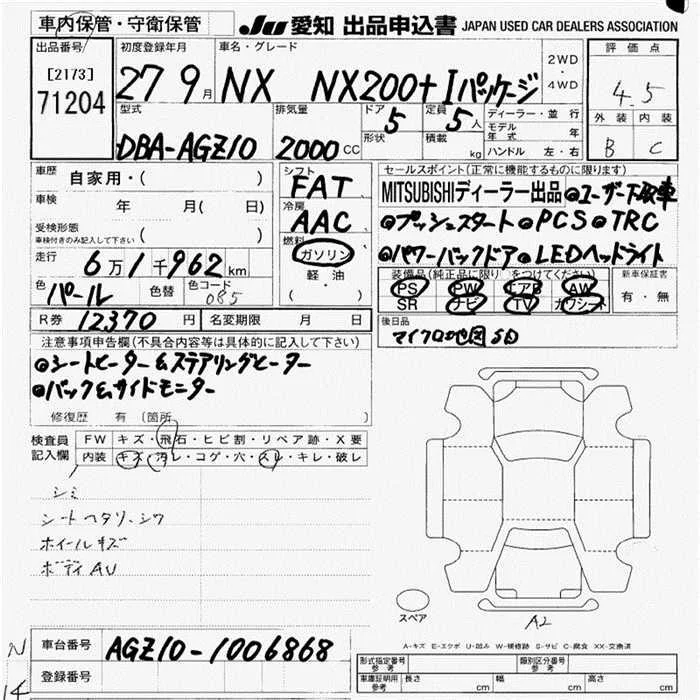 車内保管・守衛保管
JU 愛知 出品申込書 JAPAN USED CAR DEALERS ASSOCIATION
出品番号
[2173]
71204
初度登録年月
27 9月
車名・グレード
NX NX200t Iパッケージ
2WD
・
4WD
評価点
4.5
外装 内装
B C
型式
DBA-AGZ10
排気量
2000 CC
ドア 5
形状
定員 5人
積載 kg
ディーラー・並行
モデル年式 年
ハンドル 左・右
車歴 自家用・( )
車検 年 月( 日)
受検形態
車検付きのみ記入して下さい ( )
走行 6万1千962km
色 パール 色替 色コード 085
シフト
FAT
冷房
AAC
燃料
ガソリン
軽・油
( ・ )
セールスポイント(正常に機能するものに限ります)
MITSUBISHIディーラー出品 ●ユーザー下取車
●プッシュスタート ●PCS ●TRC
●パワーバックドア ●LEDヘッドライト
装備品(純正品に限り○をつけてください)
PS PW エアB AW
SR ナビ TV カワシート
新車保証書
有・無
後日品
マイクロ地図SD
R券 12370円 名変期限 月 日
注意事項申告欄(不具合内容等は具体的に記入して下さい)
●シートヒーター&ステアリングヒーター
●バック&サイドモニター
修復歴 有 (箇所
検査員
記入欄
FW キズ・飛石・ヒビ割・リペア跡・X要
内装 キズ・汚レ・コゲ・穴・スレ・キレ・破レ
シミ
シートヘタリ、シワ
ホイールキズ
ボディAU
スペア
A2
A-キズ E-エクボ U-凹み W-補修跡 S-サビ C-腐食 XX-交換済
N
14
車台番号 AGZ10-1006868
登録番号
形式指定番号 参考
類別区分番号 参考
車庫証明用 参考 長さ cm 幅 cm 高さ cm